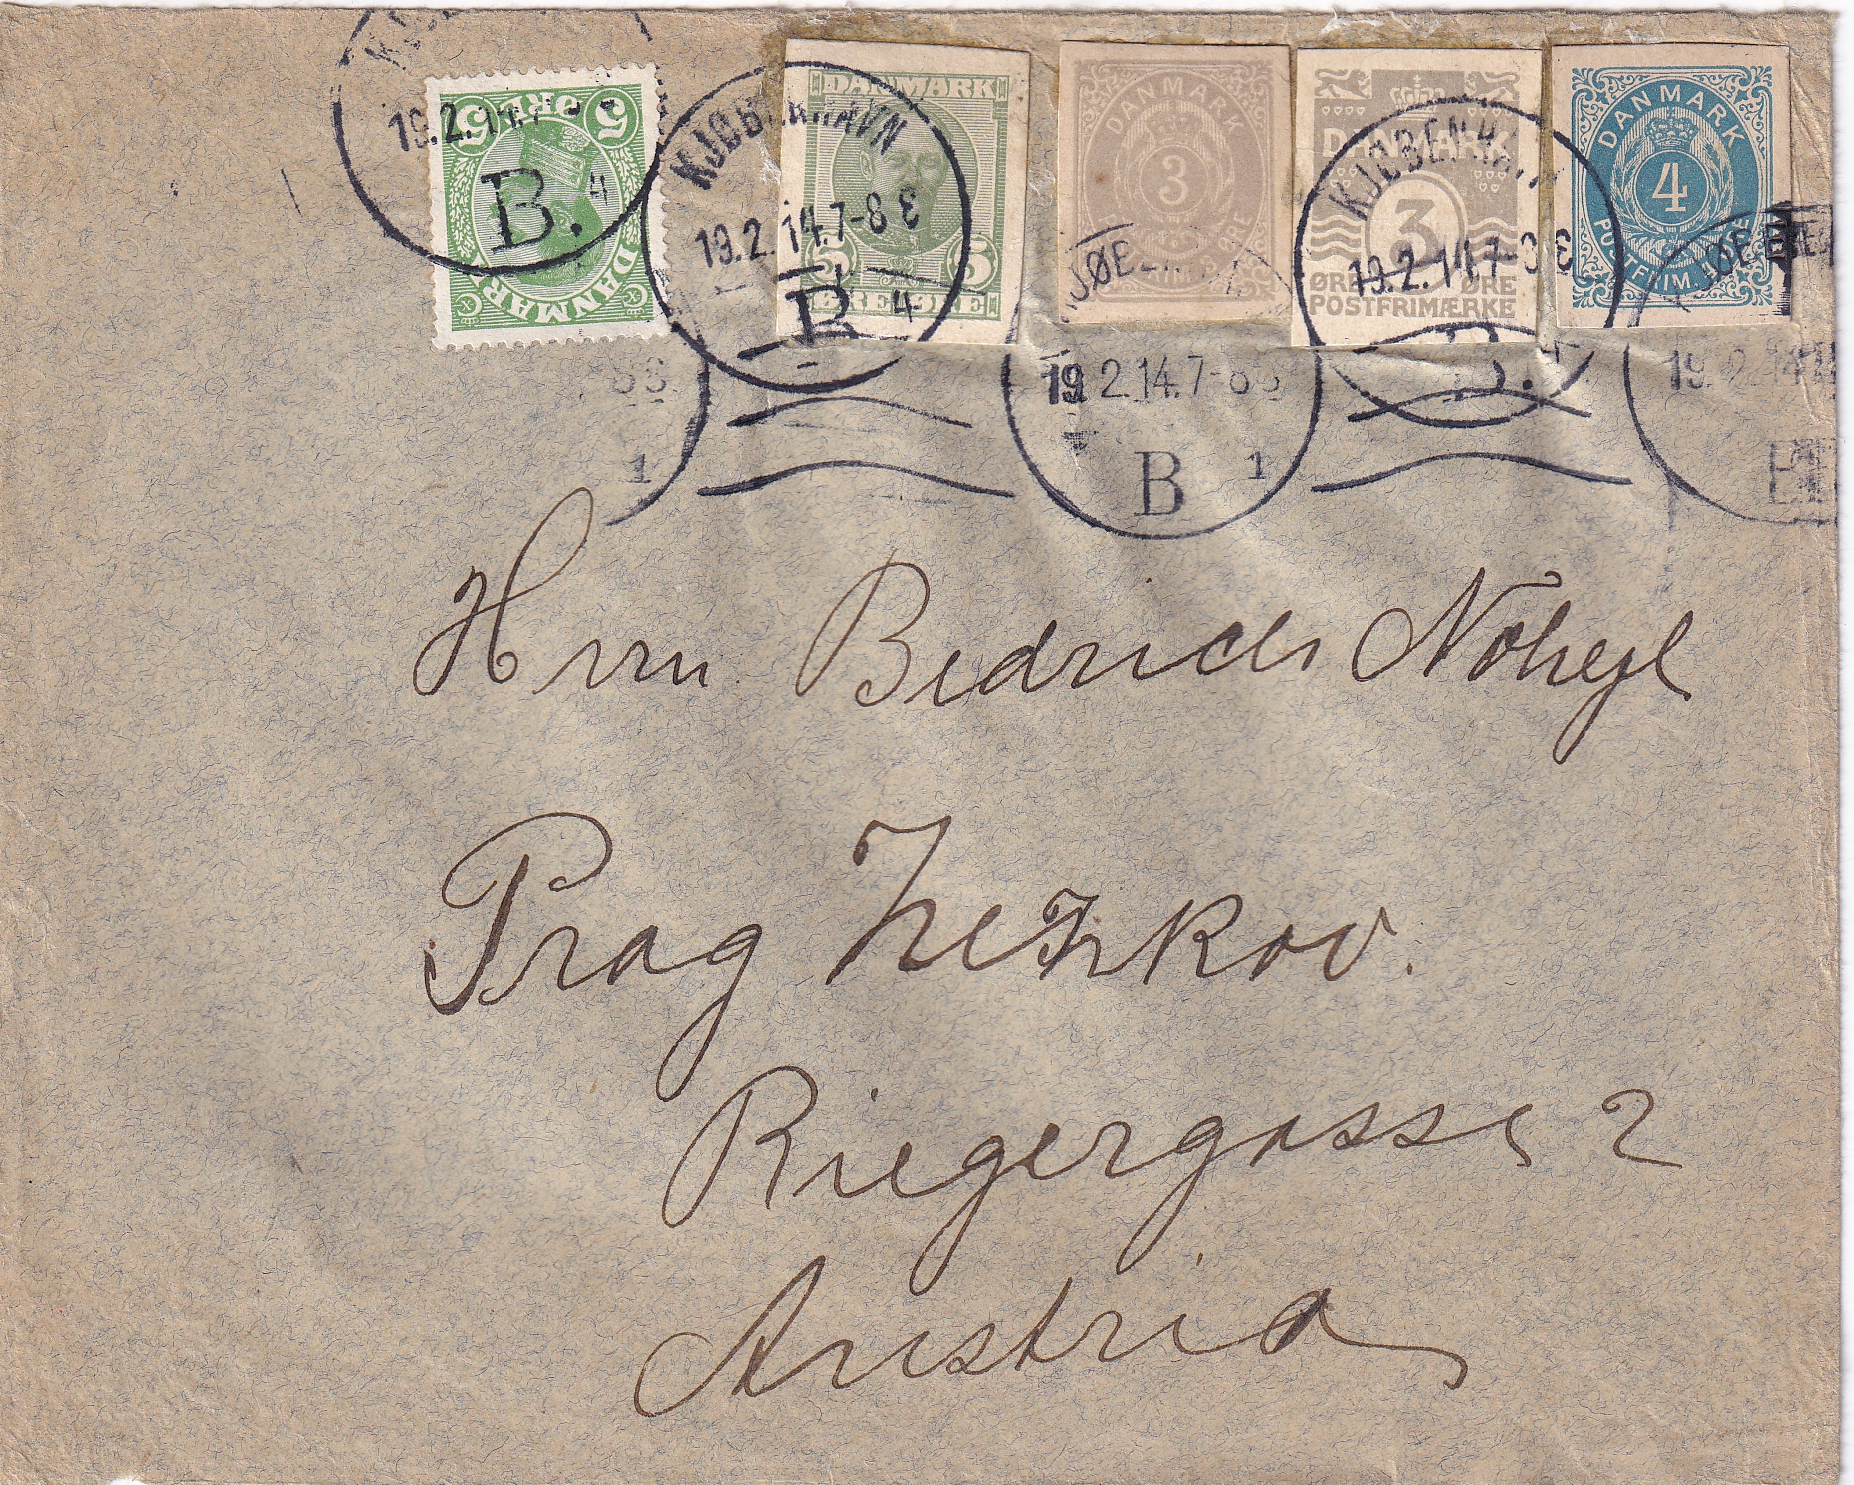 5 ØRE 5
DANMARK
19.2.14.7-8
B. 4
DANMARK
5 5
ØRE ØRE
KJØBENHAVN
19.2.14.7-8 E
B. 4
DANMARK
3
ØRE
19.2.14.7-8
B 1
DANMARK
3
ØRE ØRE
POSTFRIMÆRKE
KJØBENHAVN
19.2.14.7-8 E
B.
DANMARK
4
POSTFRIM.
19.2.14
1
Hrrn Bedrich Nohejl
Prag Zezkov.
Riegergasse 2
Austria